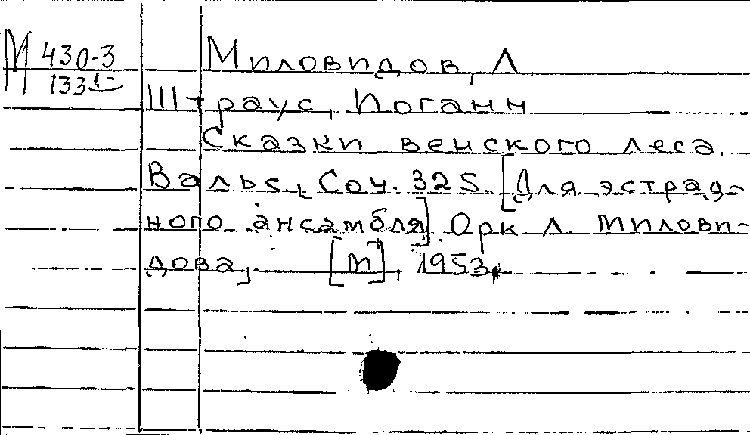 М 430-3
1331
Миловидов, Л
Штраус, Иоганн
Сказки венского леса.
Вальс, Соч. 325. [Для эстрад-
ного ансамбля] Орк Л. Милови-
дова, [М], 1953.